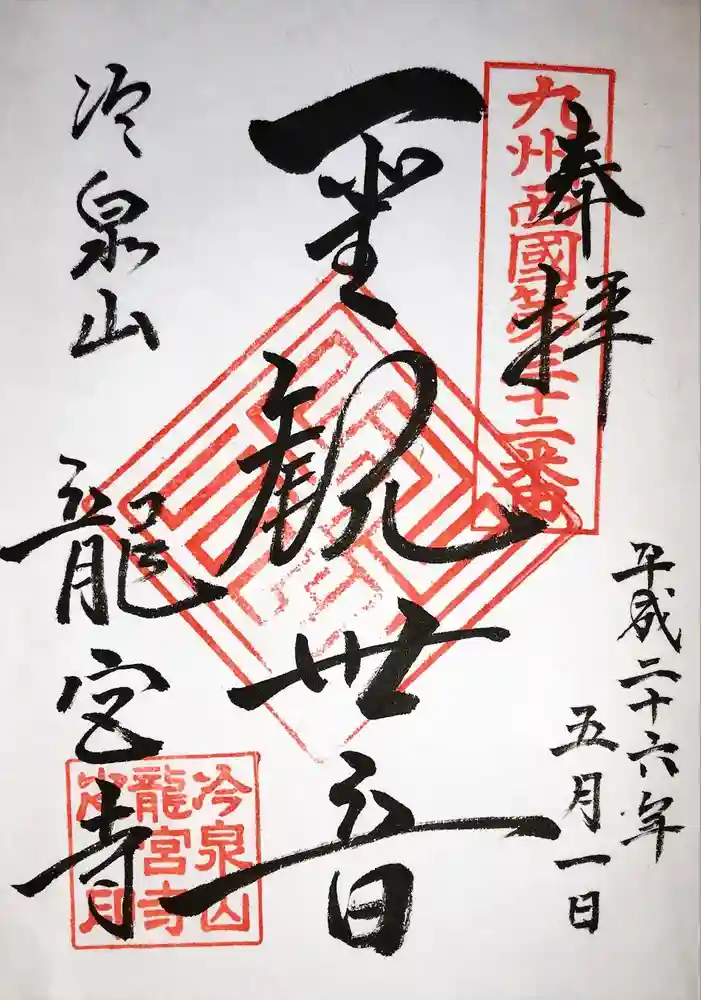 奉拝
平成二十六年
五月一日
九州西國第三十二番
聖観世音
冷泉山
龍宮寺
冷泉山
龍宮寺
印